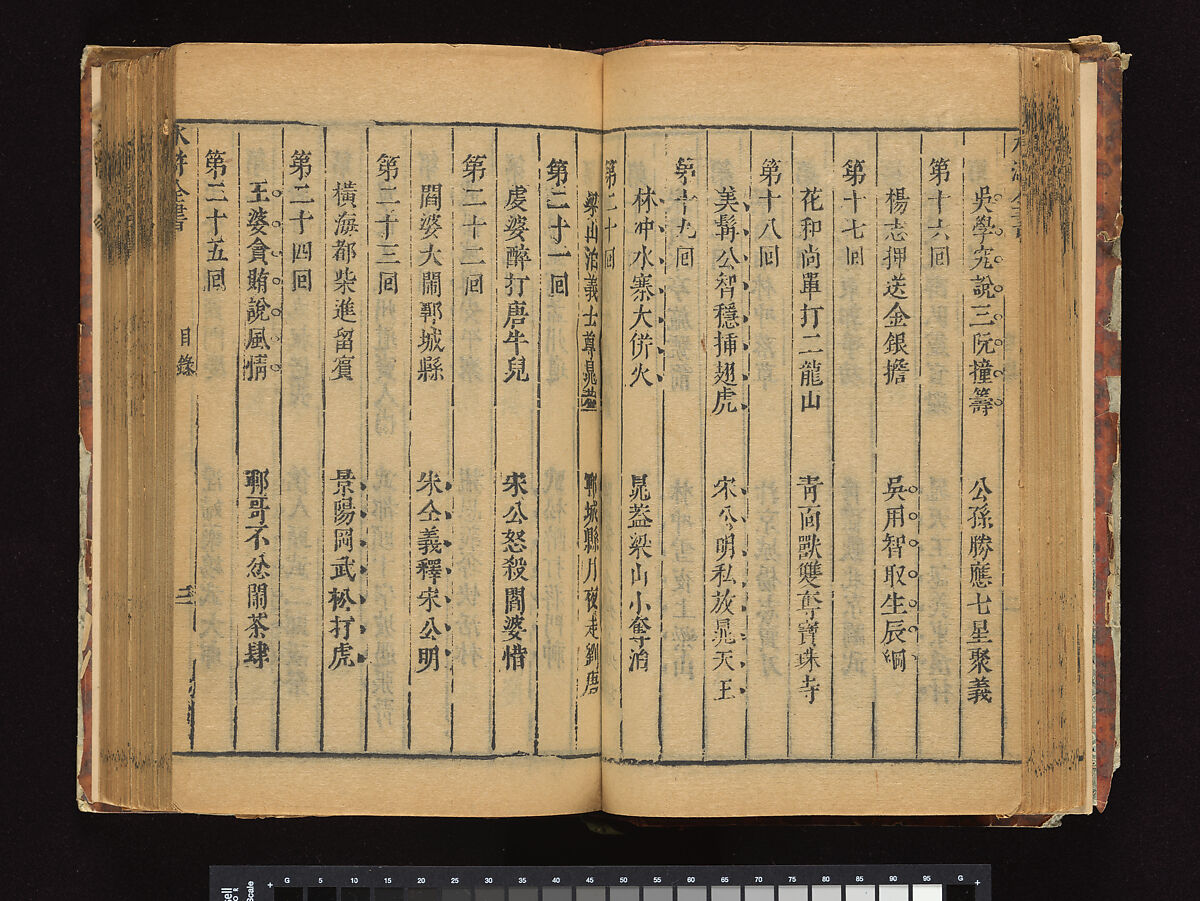 吳學究說三阮撞籌 公孫勝應七星聚義
第十六回
楊志押送金銀擔 吳用智取生辰綱
第十七回
花和尚單打二龍山 青面獸雙奪寶珠寺
第十八回
美髯公智穩揷翅虎 宋公明私放晁天王
第十九回
林冲水寨大併火 晁蓋梁山小奪泊
第二十回
梁山泊義士尊晁蓋 鄆城縣月夜走劉唐
第二十一回
虔婆醉打唐牛兒 宋公怒殺閻婆惜
第二十二回
閻婆大閙鄆城縣 朱仝義釋宋公明
第二十三回
橫海郡柴進留賓 景陽岡武松打虎
第二十四回
王婆貪賄說風情 鄆哥不忿閙茶肆
第二十五回
水滸全書 目錄 三
G 5 10 15 20 25 30 35 40 45 50 55 60 65 70 75 80 85 90 95 G